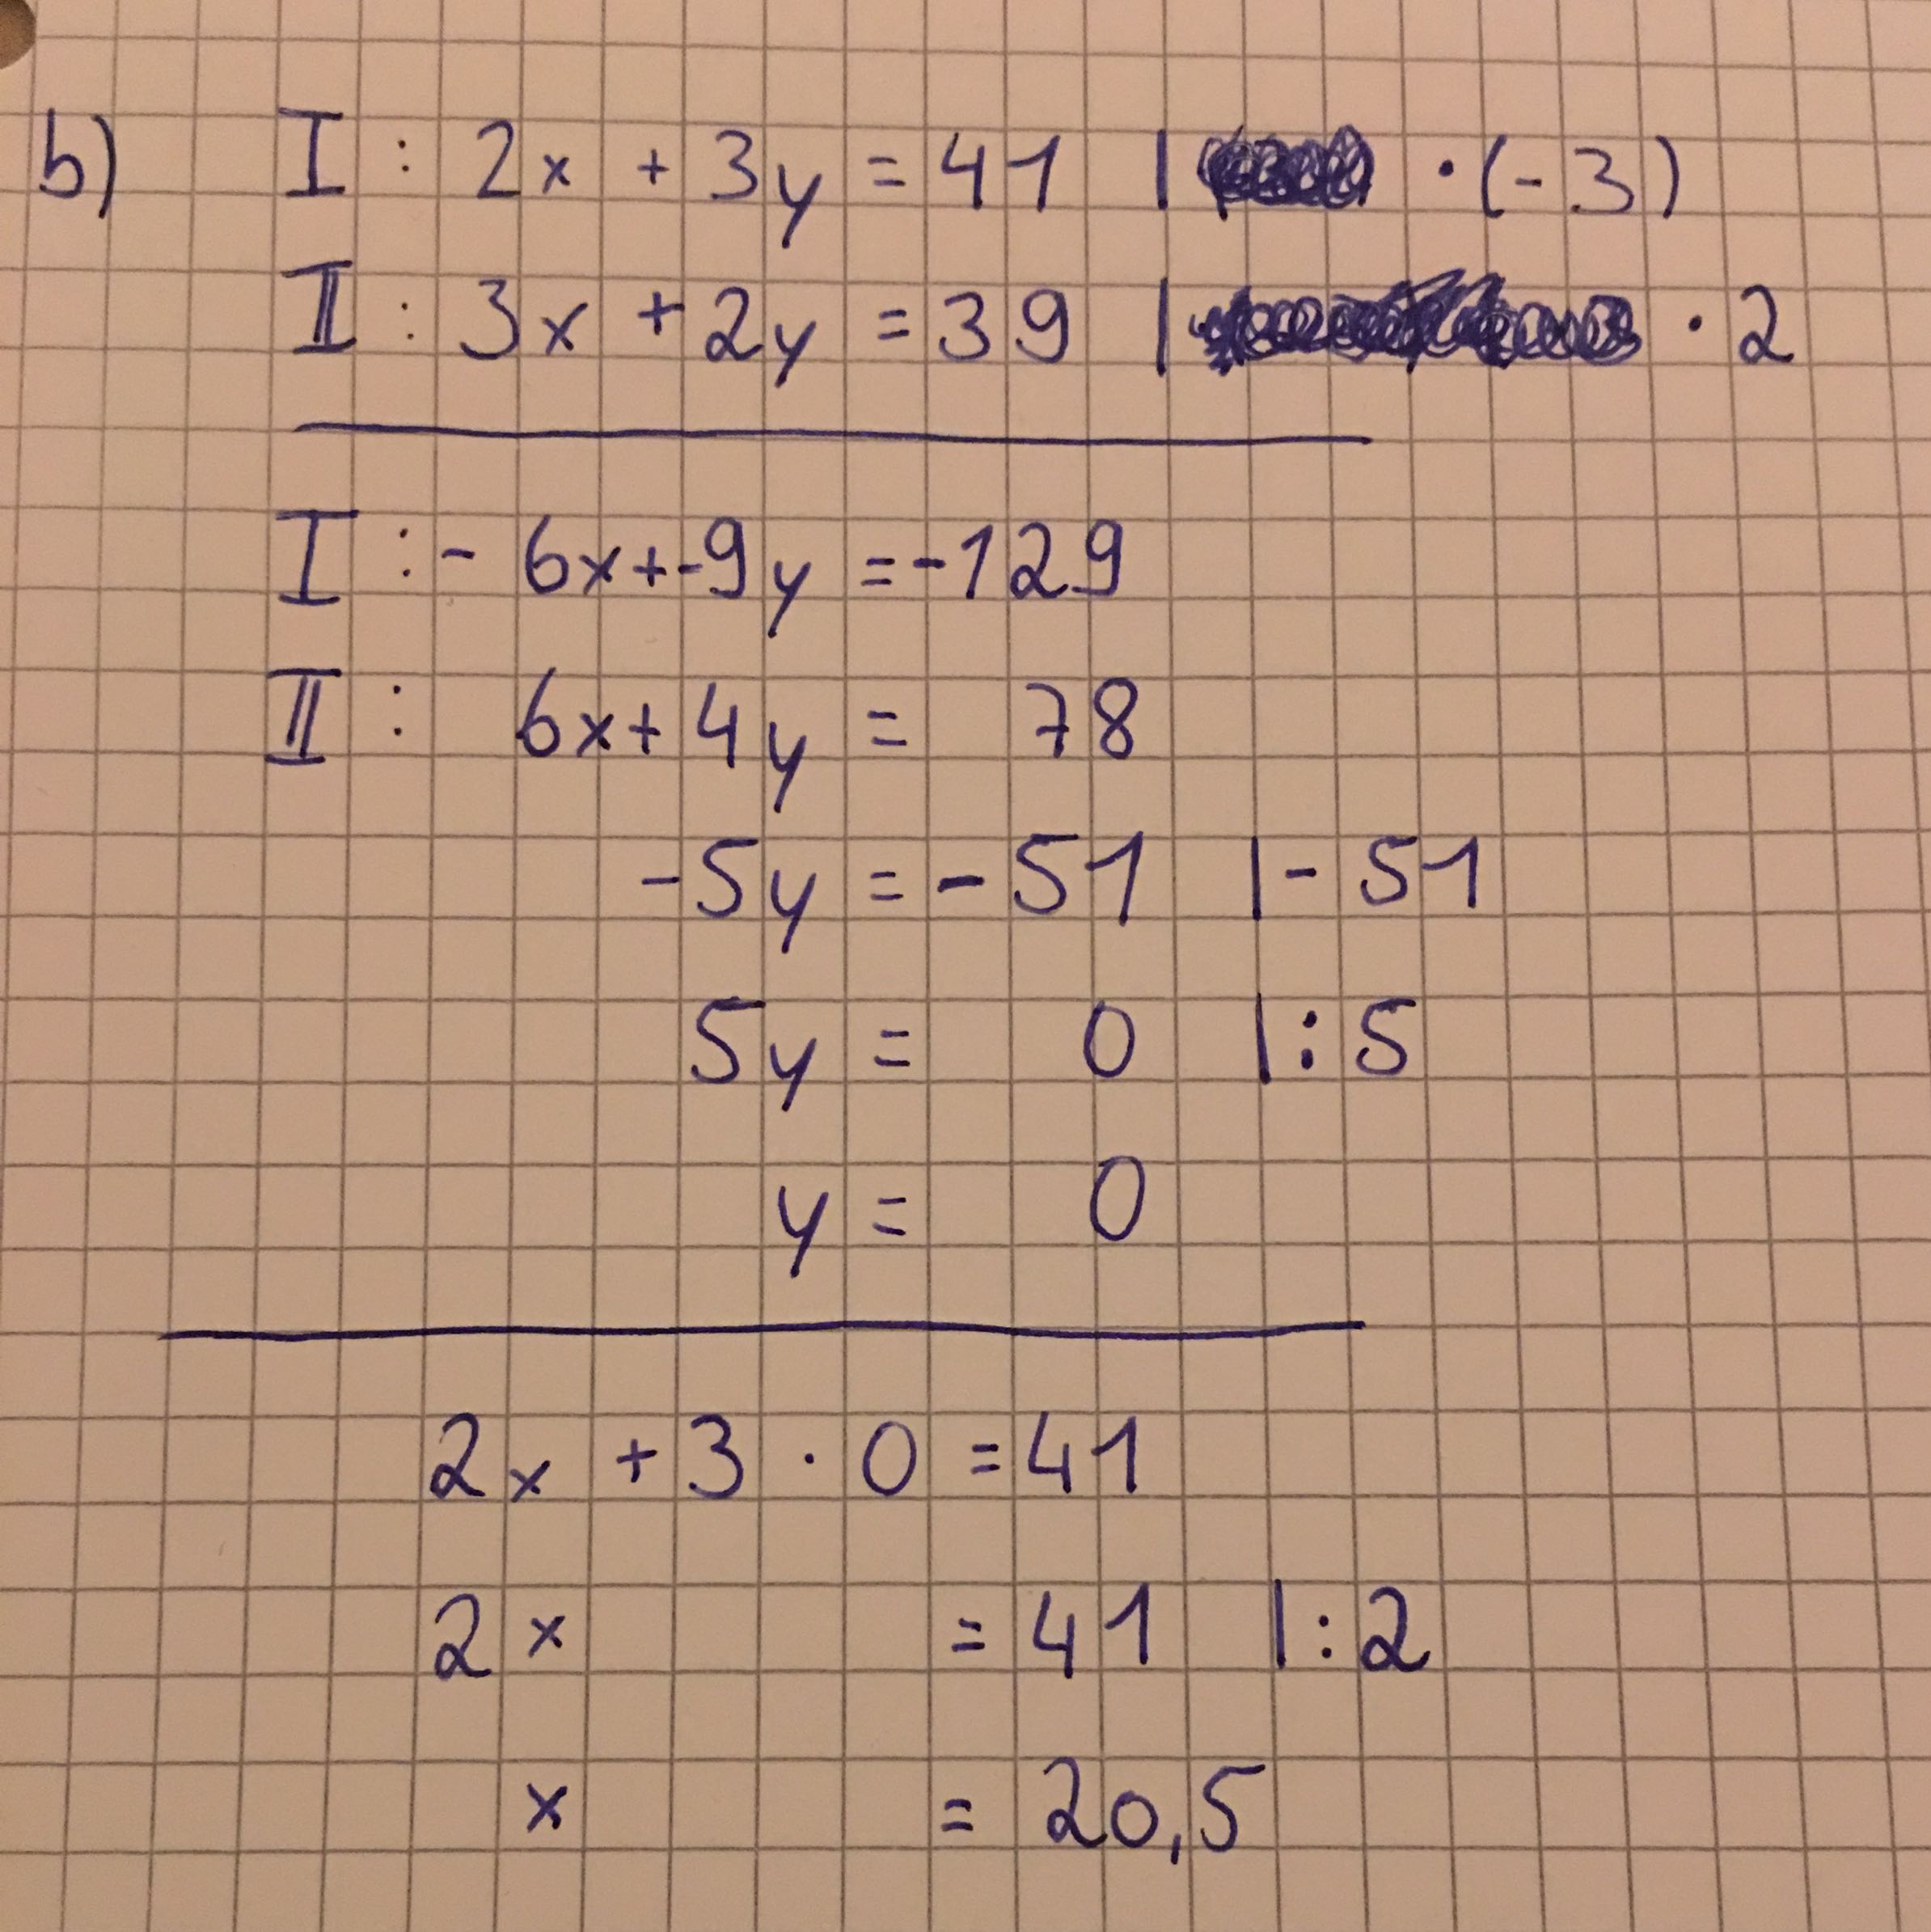 b) I : 2x + 3y = 41 | · (-3)
II : 3x + 2y = 39 | · 2
I : - 6x + -9y = -129
II : 6x + 4y = 78
-5y = - 51 | - 51
5y = 0 | : 5
y = 0
2x + 3 · 0 = 41
2x = 41 | : 2
x = 20,5